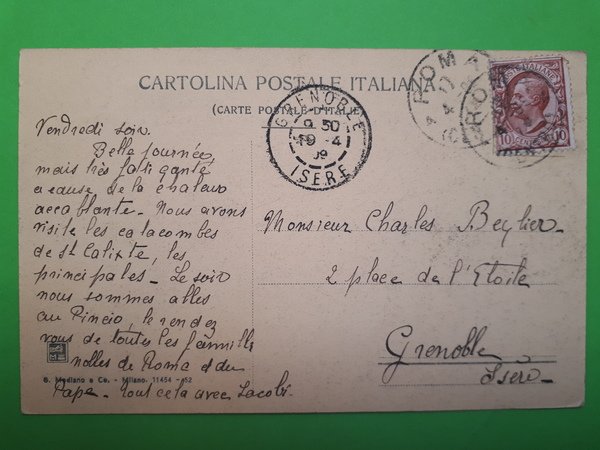 CARTOLINA POSTALE ITALIANA
(CARTE POSTALE D'ITALIE)
Vendredi soir
Belle journée,
mais très fatigante
a cause de la chaleur
accablante. Nous avons
visité les catacombes
de St Calixte, les
principales - Le soir
nous sommes allés
au Pincio, le rendez
vous de toutes les
de Roma et du
Pape - Tout cela avec Jacobi.
G. Modiano e Co. - Milano. 11454 - 52
GRENOBLE
9 30
19 - 4
09
ISERE
ROMA
ROMA
POSTE ITALIANE
10
10
Monsieur Charles Beylier
2 place de l'Etoile
Grenoble
Isère